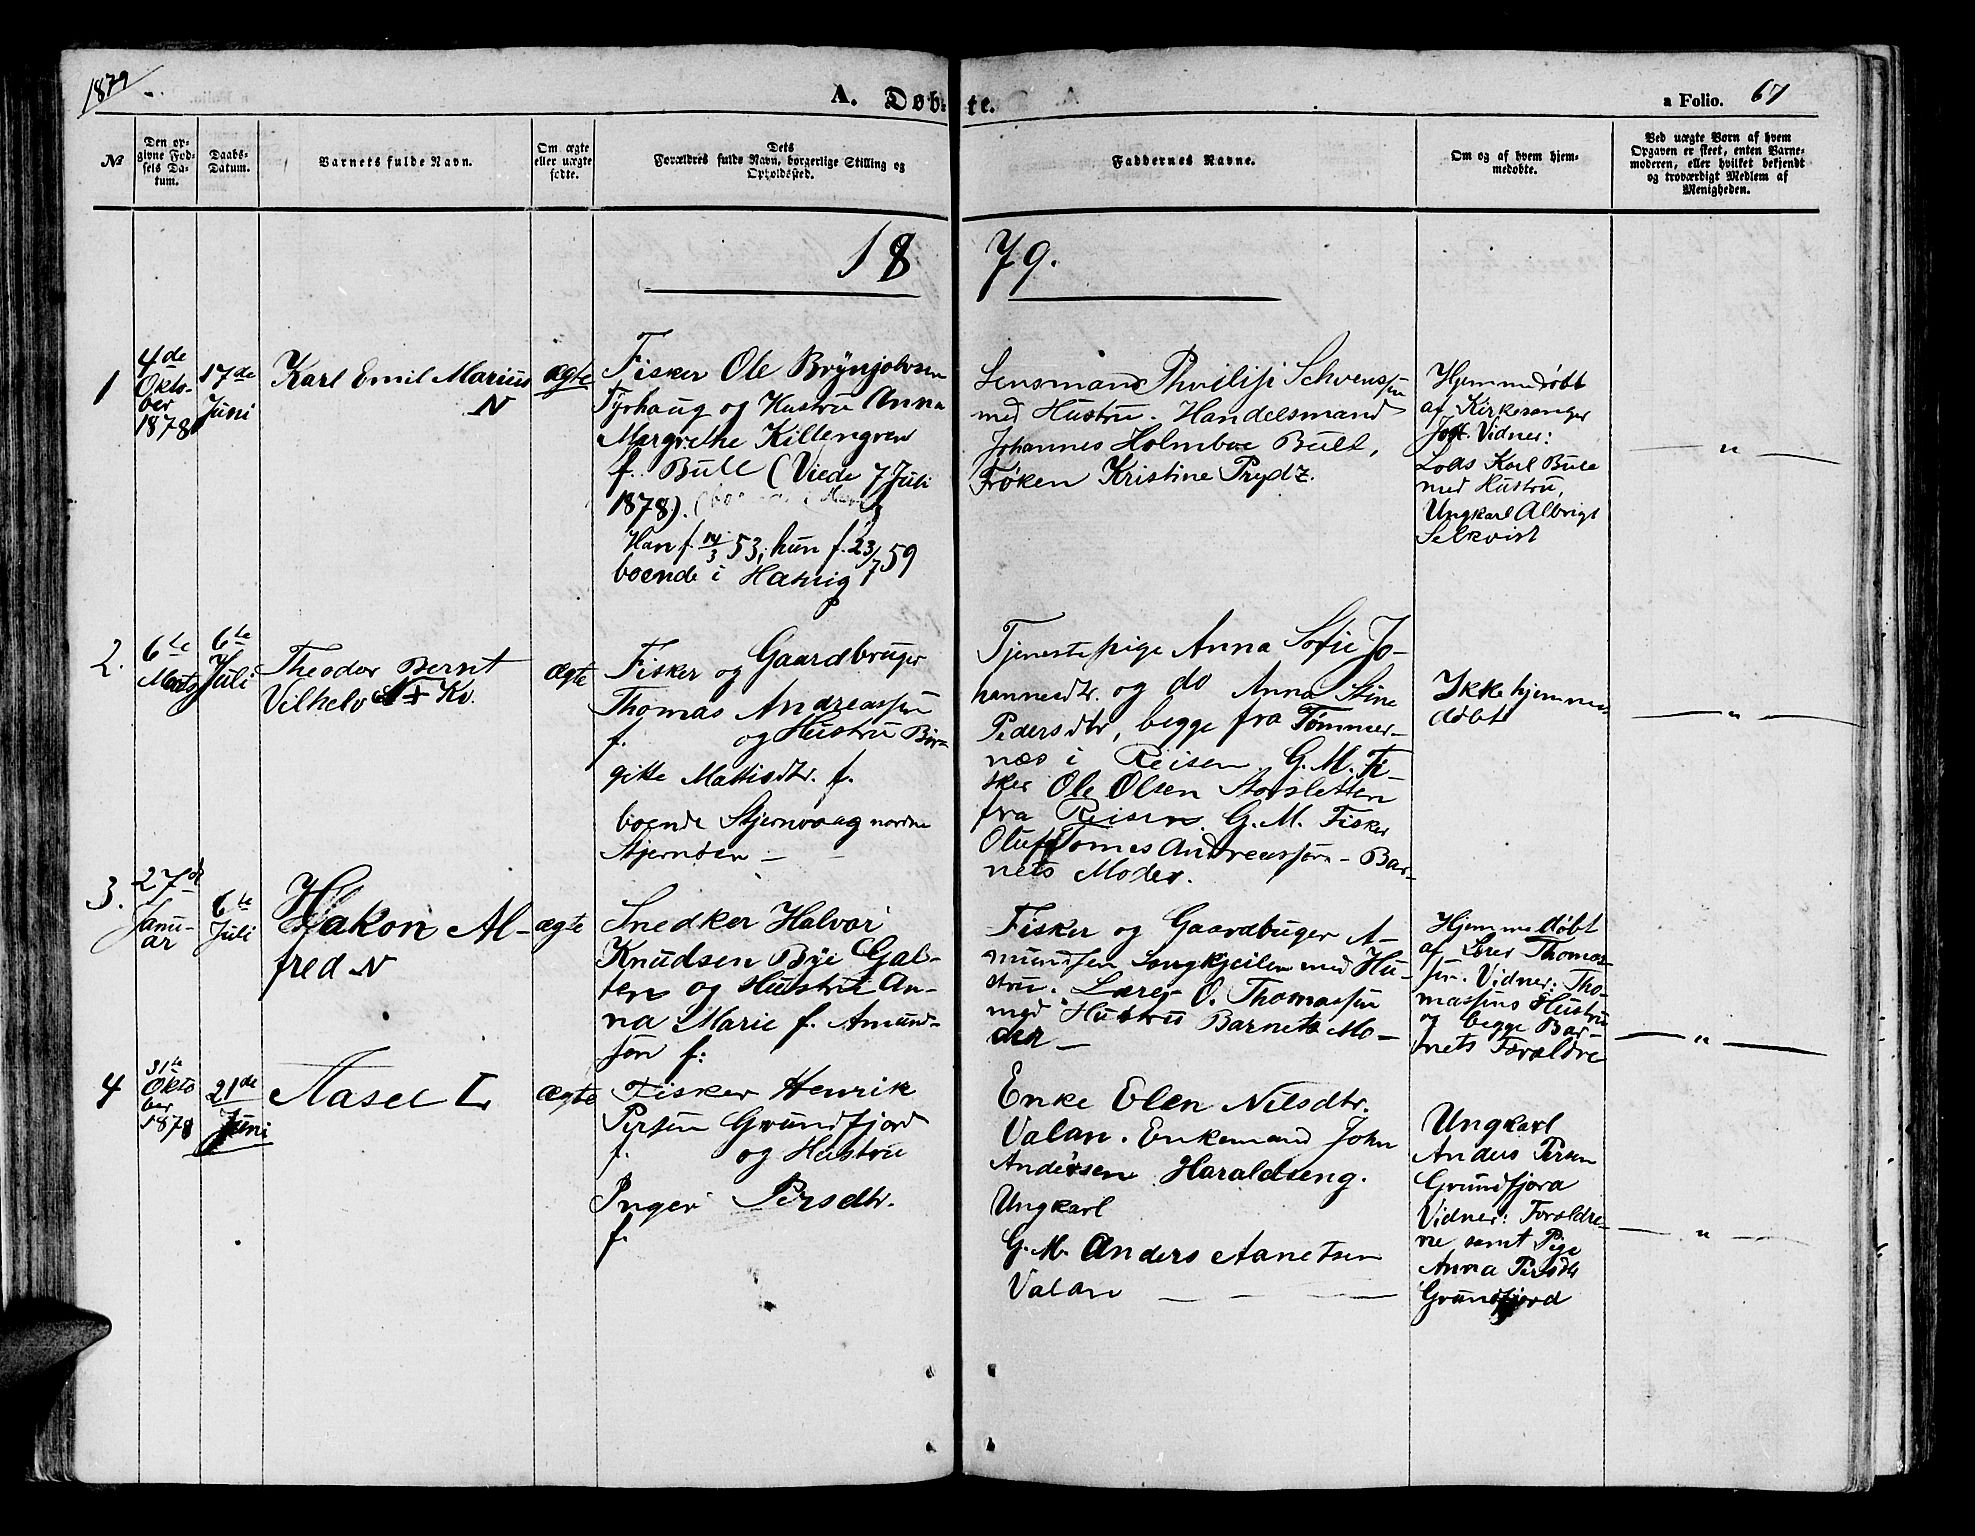 1879
A. Døb-
te.
a Folio. 67
№
Den op-
givne Fød-
sels Da-
tum.
Daabs-
Datum.
Barnets fulde Navn.
Om ægte
eller uægte
fødte.
Dets
Forældres fulde Navn, borgerlige Stilling og
Opholdssted.
Faddernes Navne.
Om og af hvem hjem-
medøbte.
Ved uægte Børn af hvem
Opgaven er skeet, enten Barne-
moderen, eller hvilket bekjendt
og troværdigt Medlem af
Menigheden.
18
79.
1
4de
Okto-
ber
1878
17de
Juni
Karl Emil Marius
N
ægte
Fisker Ole Brynjolvsen
Fyrhaug og Hustru Anna
Margrethe Killengren
f. Bull (Viede 7 Juli
1878).
Han f. 14/3 53, hun f. 23/7 59
boende i Hasvig
Lensmand Philip Schvenssen
med Hustru. Handelsmand
Johannes Holmboe Bull,
Frøken Kristine Prydz.
Hjemmedøbt
af Kirkesanger
Vidner:
Lods Karl Bull
med Hustru,
Ungkarl Albrigt
Selkvist
"
2.
6te
Marts
6te
Juli
Theodor Bernt
Vilhelv Kv.
ægte
Fisker og Gaardbruger
Thomas Andreassen
f. og Hustru Bir-
gitte Mattisdtr. f.
boende Stjernvaag nordre
Stjernøen -
Tjenestepige Anna Sofie Jo-
hannesdtr. og do Anna Stine
Pedersdtr, begge fra Tømmer-
næs i Reisen. G. M. Fi-
sker Ole Olsen Storsletten
fra Reisen. G. M. Fisker
Oluf Tomas Andreassen - Bar-
nets Moder.
Ikke hjemme-
døbt
"
3.
27de
Janu-
ar
6te
Juli
Hakon Al-
fred N
ægte
Snedker Halvor
Knudsen Bye Gal-
ten og Hustru An-
na Marie f. Amund-
sen f:
Fisker og Gaardbuger A-
mundsen Longkjeilen med Hu-
stru. Lærer O. Thomassen
med Hustru Barnets Mo-
der -
Hjemmedøbt
af Lærer Thomas-
sen. Vidner: Tho-
massens Hustru
og begge Bar-
nets Forældre
"
4
31te
Okto
ber
1878
21de
Juni
Aasel L
ægte
Fisker Henrik
Persen Grundfjord
f. og Hustru
Inger Persdtr.
f.
Enke Elen Nilsdtr.
Valan. Enkemand John
Andersen Haraldseng.
Ungkarl
G. M. Anders Aanetsen
Valan
Ungkarl
Anders Persen
Grundfjord
Vidner: Forældre-
ne samt Pige
Anna Persdtr
Grundfjord
"